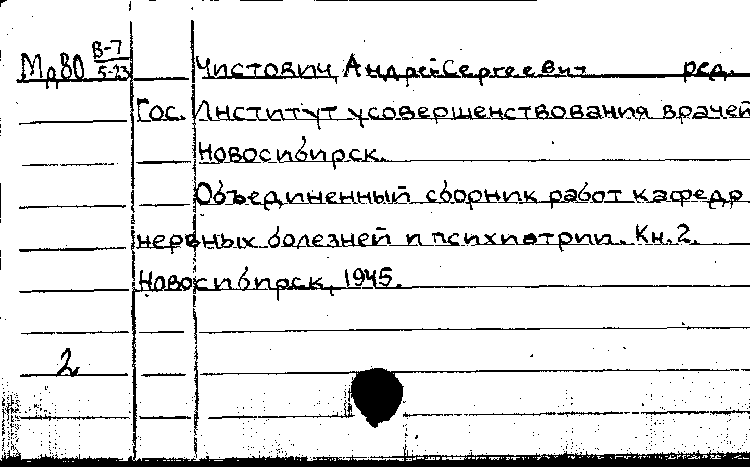 Мд80 В-7/5-23 Чистович, Андрей Сергеевич ред.
Гос. Институт усовершенствования врачей
Новосибирск.
Объединенный сборник работ кафедр
нервных болезней и психиатрии. Кн. 2.
Новосибирск, 1945.
2